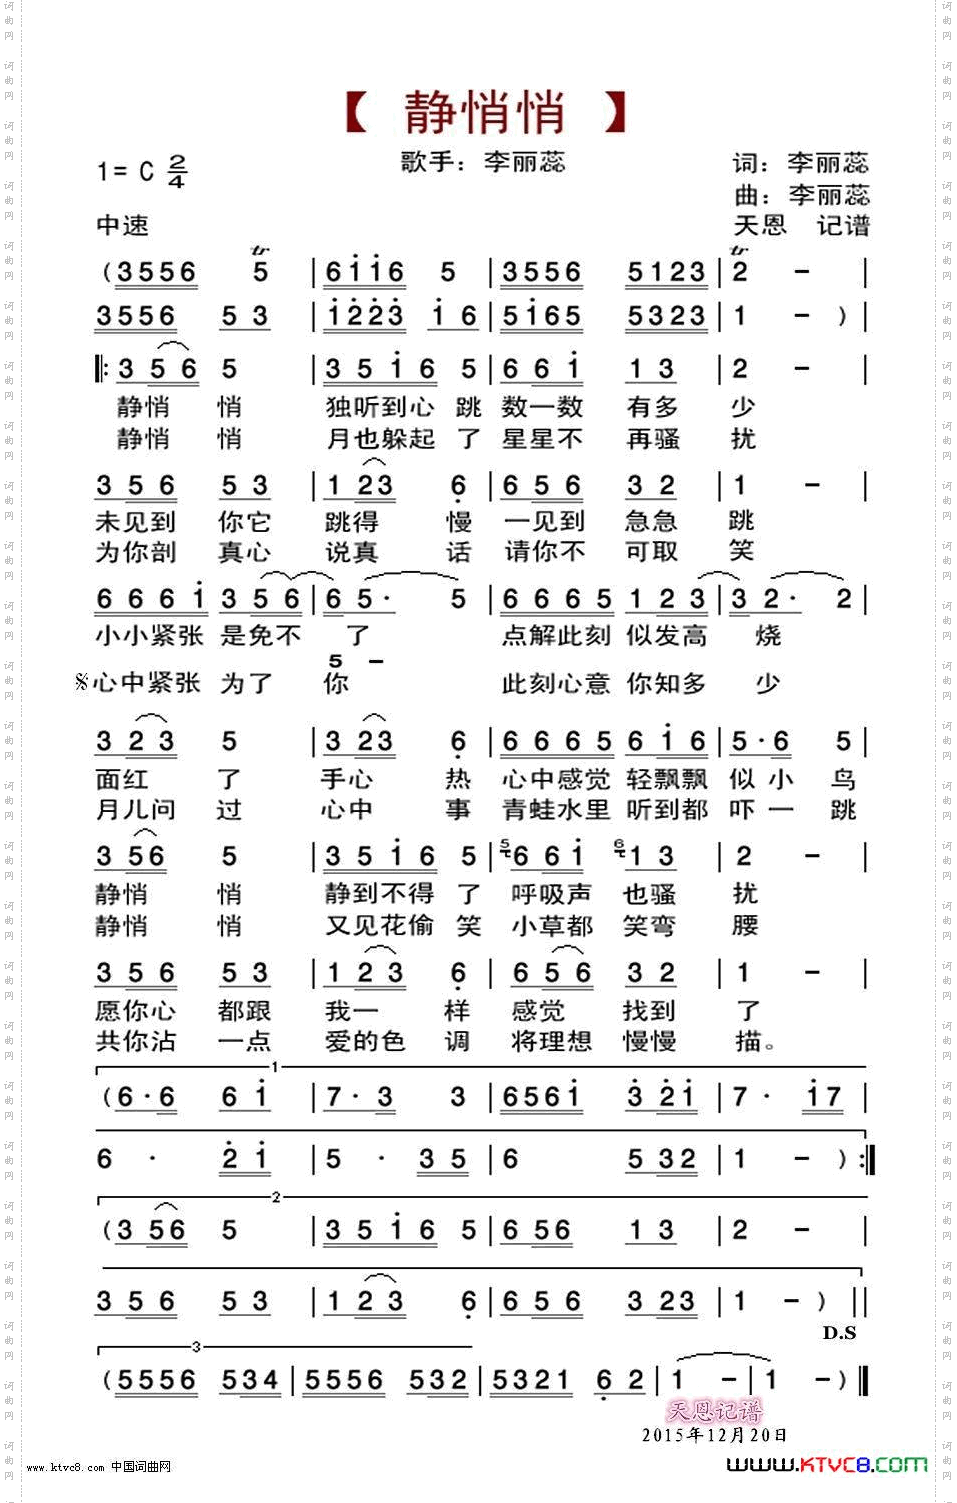 【 静悄悄 】
1= C 2/4
歌手：李丽蕊
词：李丽蕊
曲：李丽蕊
中速
天恩 记谱
(3556 5 | 6i i6 5 | 3556 5123 | 2 － |
3556 53 | i223 i6 | 5i65 5323 | 1 － ) |
‖: 356 5 | 35i6 5 | 66i 13 | 2 － |
静悄 悄 独听到心 跳 数一数 有多 少
静悄 悄 月也躲起 了 星星不 再骚 扰
356 53 | 123 6 | 656 32 | 1 － |
未见到 你它 跳得 慢 一见到 急急 跳
为你剖 真心 说真 话 请你不 可取 笑
666i 356 | 65· 5 | 6665 123 | 32· 2 |
小小紧张 是免不 了 点解此刻 似发高 烧
5 －
心中紧张 为了 你 此刻心意 你知多 少
323 5 | 323 6 | 6665 6i6 | 5·6 5 |
面红 了 手心 热 心中感觉 轻飘飘 似小 鸟
月儿问 过 心中 事 青蛙水里 听到都 吓一 跳
356 5 | 35i6 5 | 5 66i 6 13 | 2 － |
静悄 悄 静到不得 了 呼吸声 也骚 扰
静悄 悄 又见花偷 笑 小草都 笑弯 腰
356 53 | 123 6 | 656 32 | 1 － |
愿你心 都跟 我一 样 感觉 找到 了
共你沾 一点 爱的色 调 将理想 慢慢 描。
1
(6·6 6i | 7·3 3 | 656i 32i | 7· i7 |
6 · 2i | 5 · 35 | 6 532 | 1 － ) :‖
2
(356 5 | 35i6 5 | 656 13 | 2 － |
356 53 | 123 6 | 656 323 | 1 － ) ‖
D.S
3
(5556 534 | 5556 532 | 5321 62 | 1 － | 1 － ) ‖
天恩记谱
2015年12月20日
www.ktvc8.com 中国词曲网
www.KTVC8.com